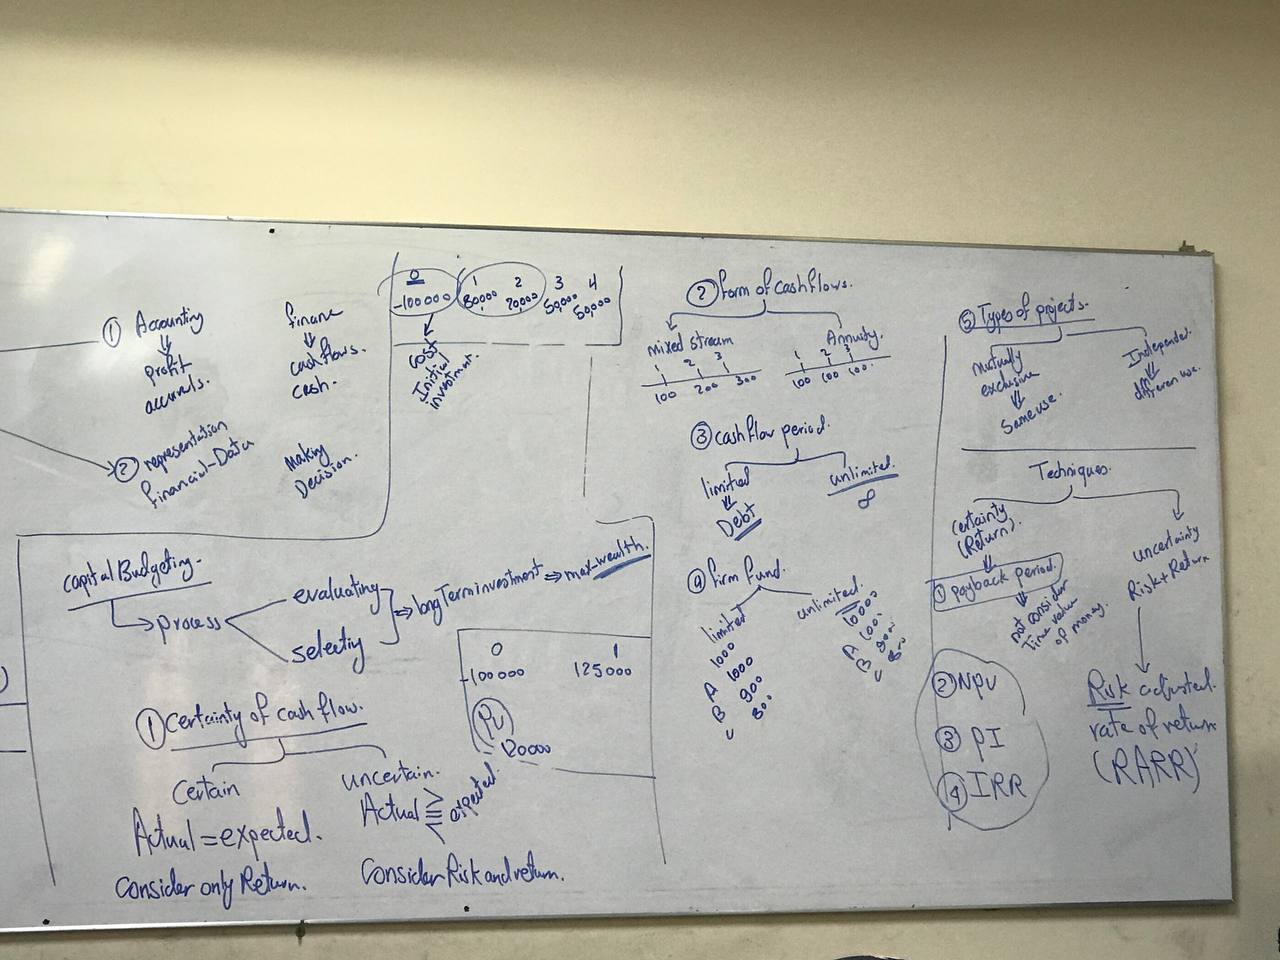 ① Accounting
profit
accruals.
finance
cashflows.
cash.
② representation
Financial-Data
Making
Decision.
0 1 2 3 4
-100000 80000 20,000 50,000 50,000
Cost
Initial
investment.
capital Budgeting-
process
evaluating
selecting
⇒ long Term investment ⇒ max-wealth.
① Certainty of cash flow.
Certain
Actual = expected.
Consider only Return.
uncertain.
Actual > = < expected
Consider Risk and return.
0 1
-100000 125000
PV
120000
② form of cashflows.
mixed stream
1 2 3
100 200 300
Annuity.
1 2 3
100 100 100.
③ cashflow period.
limited
Debt
unlimited.
∞
④ firm fund.
limited
1000
A 1000
B 900
800
unlimited.
10000
A 1000
B
⑤ Types of projects.
mutually
exclusive
Same use.
Independent.
different use.
Techniques.
certainty
(Return).
① payback period.
not consider
Time value
of money.
② NPV
③ PI
④ IRR
uncertainty
Risk+Return
Risk adjusted.
rate of return
(RARR)